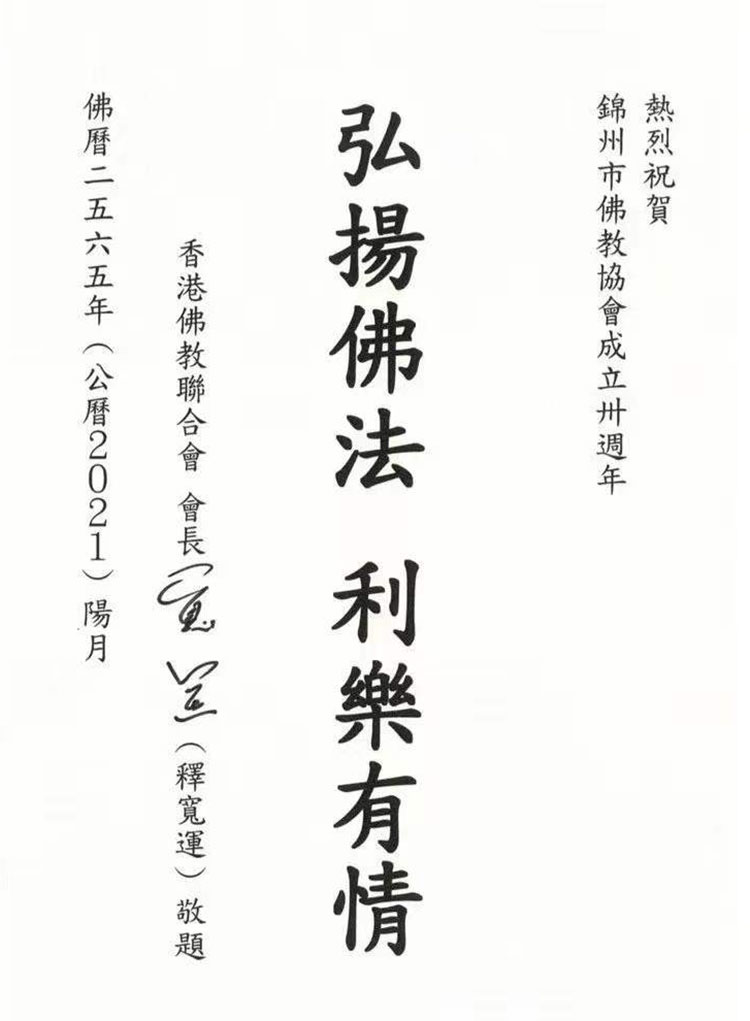 熱烈祝賀
錦州市佛教協會成立卅週年
弘揚佛法 利樂有情
香港佛教聯合會 會長 寬運（釋寬運）敬題
佛曆二五六五年（公曆2021）陽月